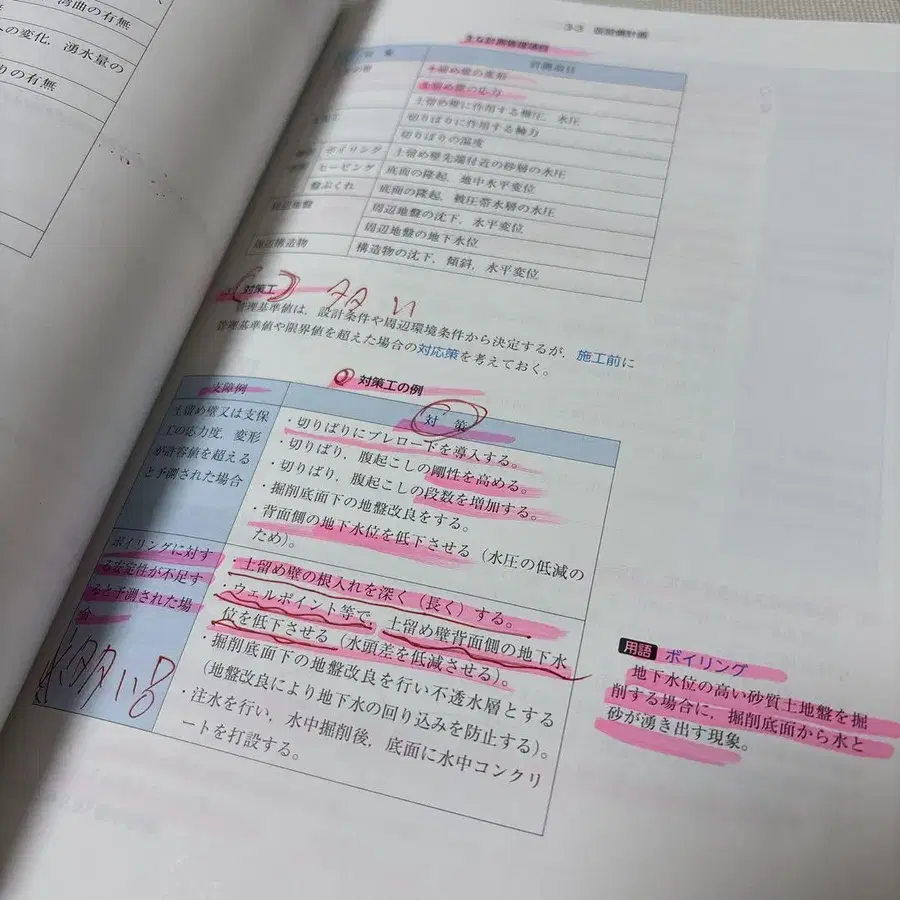 湾曲の有無
の変化，湧水量の
りの有無
3-3 仮設備計画
主な計測管理項目
計測項目
土留め壁の変形
土留め壁の応力
土留め壁に作用する側圧，水圧
切りばりに作用する軸力
切りばりの温度
ボイリング 土留め壁先端付近の砂層の水圧
ヒービング 底面の隆起，地中水平変位
盤ぶくれ 底面の隆起，被圧帯水層の水圧
周辺地盤 周辺地盤の沈下，水平変位
周辺地盤の地下水位
周辺構造物 構造物の沈下，傾斜，水平変位
対策工 多い
管理基準値は，設計条件や周辺環境条件から決定するが，施工前に
管理基準値や限界値を超えた場合の対応策を考えておく。
対策工の例
支障例 対 策
土留め壁又は支保
工の応力度，変形
が許容値を超える
と予測された場合
・切りばりにプレロードを導入する。
・切りばり，腹起こしの剛性を高める。
・切りばり，腹起こしの段数を増加する。
・掘削底面下の地盤改良をする。
・背面側の地下水位を低下させる（水圧の低減の
ため）。
ボイリングに対す
る安定性が不足す
ると予測された場
合
多い
・土留め壁の根入れを深く（長く）する。
・ウェルポイント等で，土留め壁背面側の地下水
位を低下させる（水頭差を低減させる）。
・掘削底面下の地盤改良を行い不透水層とする
（地盤改良により地下水の回り込みを防止する）。
・注水を行い，水中掘削後，底面に水中コンクリ
ートを打設する。
用語 ボイリング
地下水位の高い砂質土地盤を掘
削する場合に，掘削底面から水と
砂が湧き出す現象。